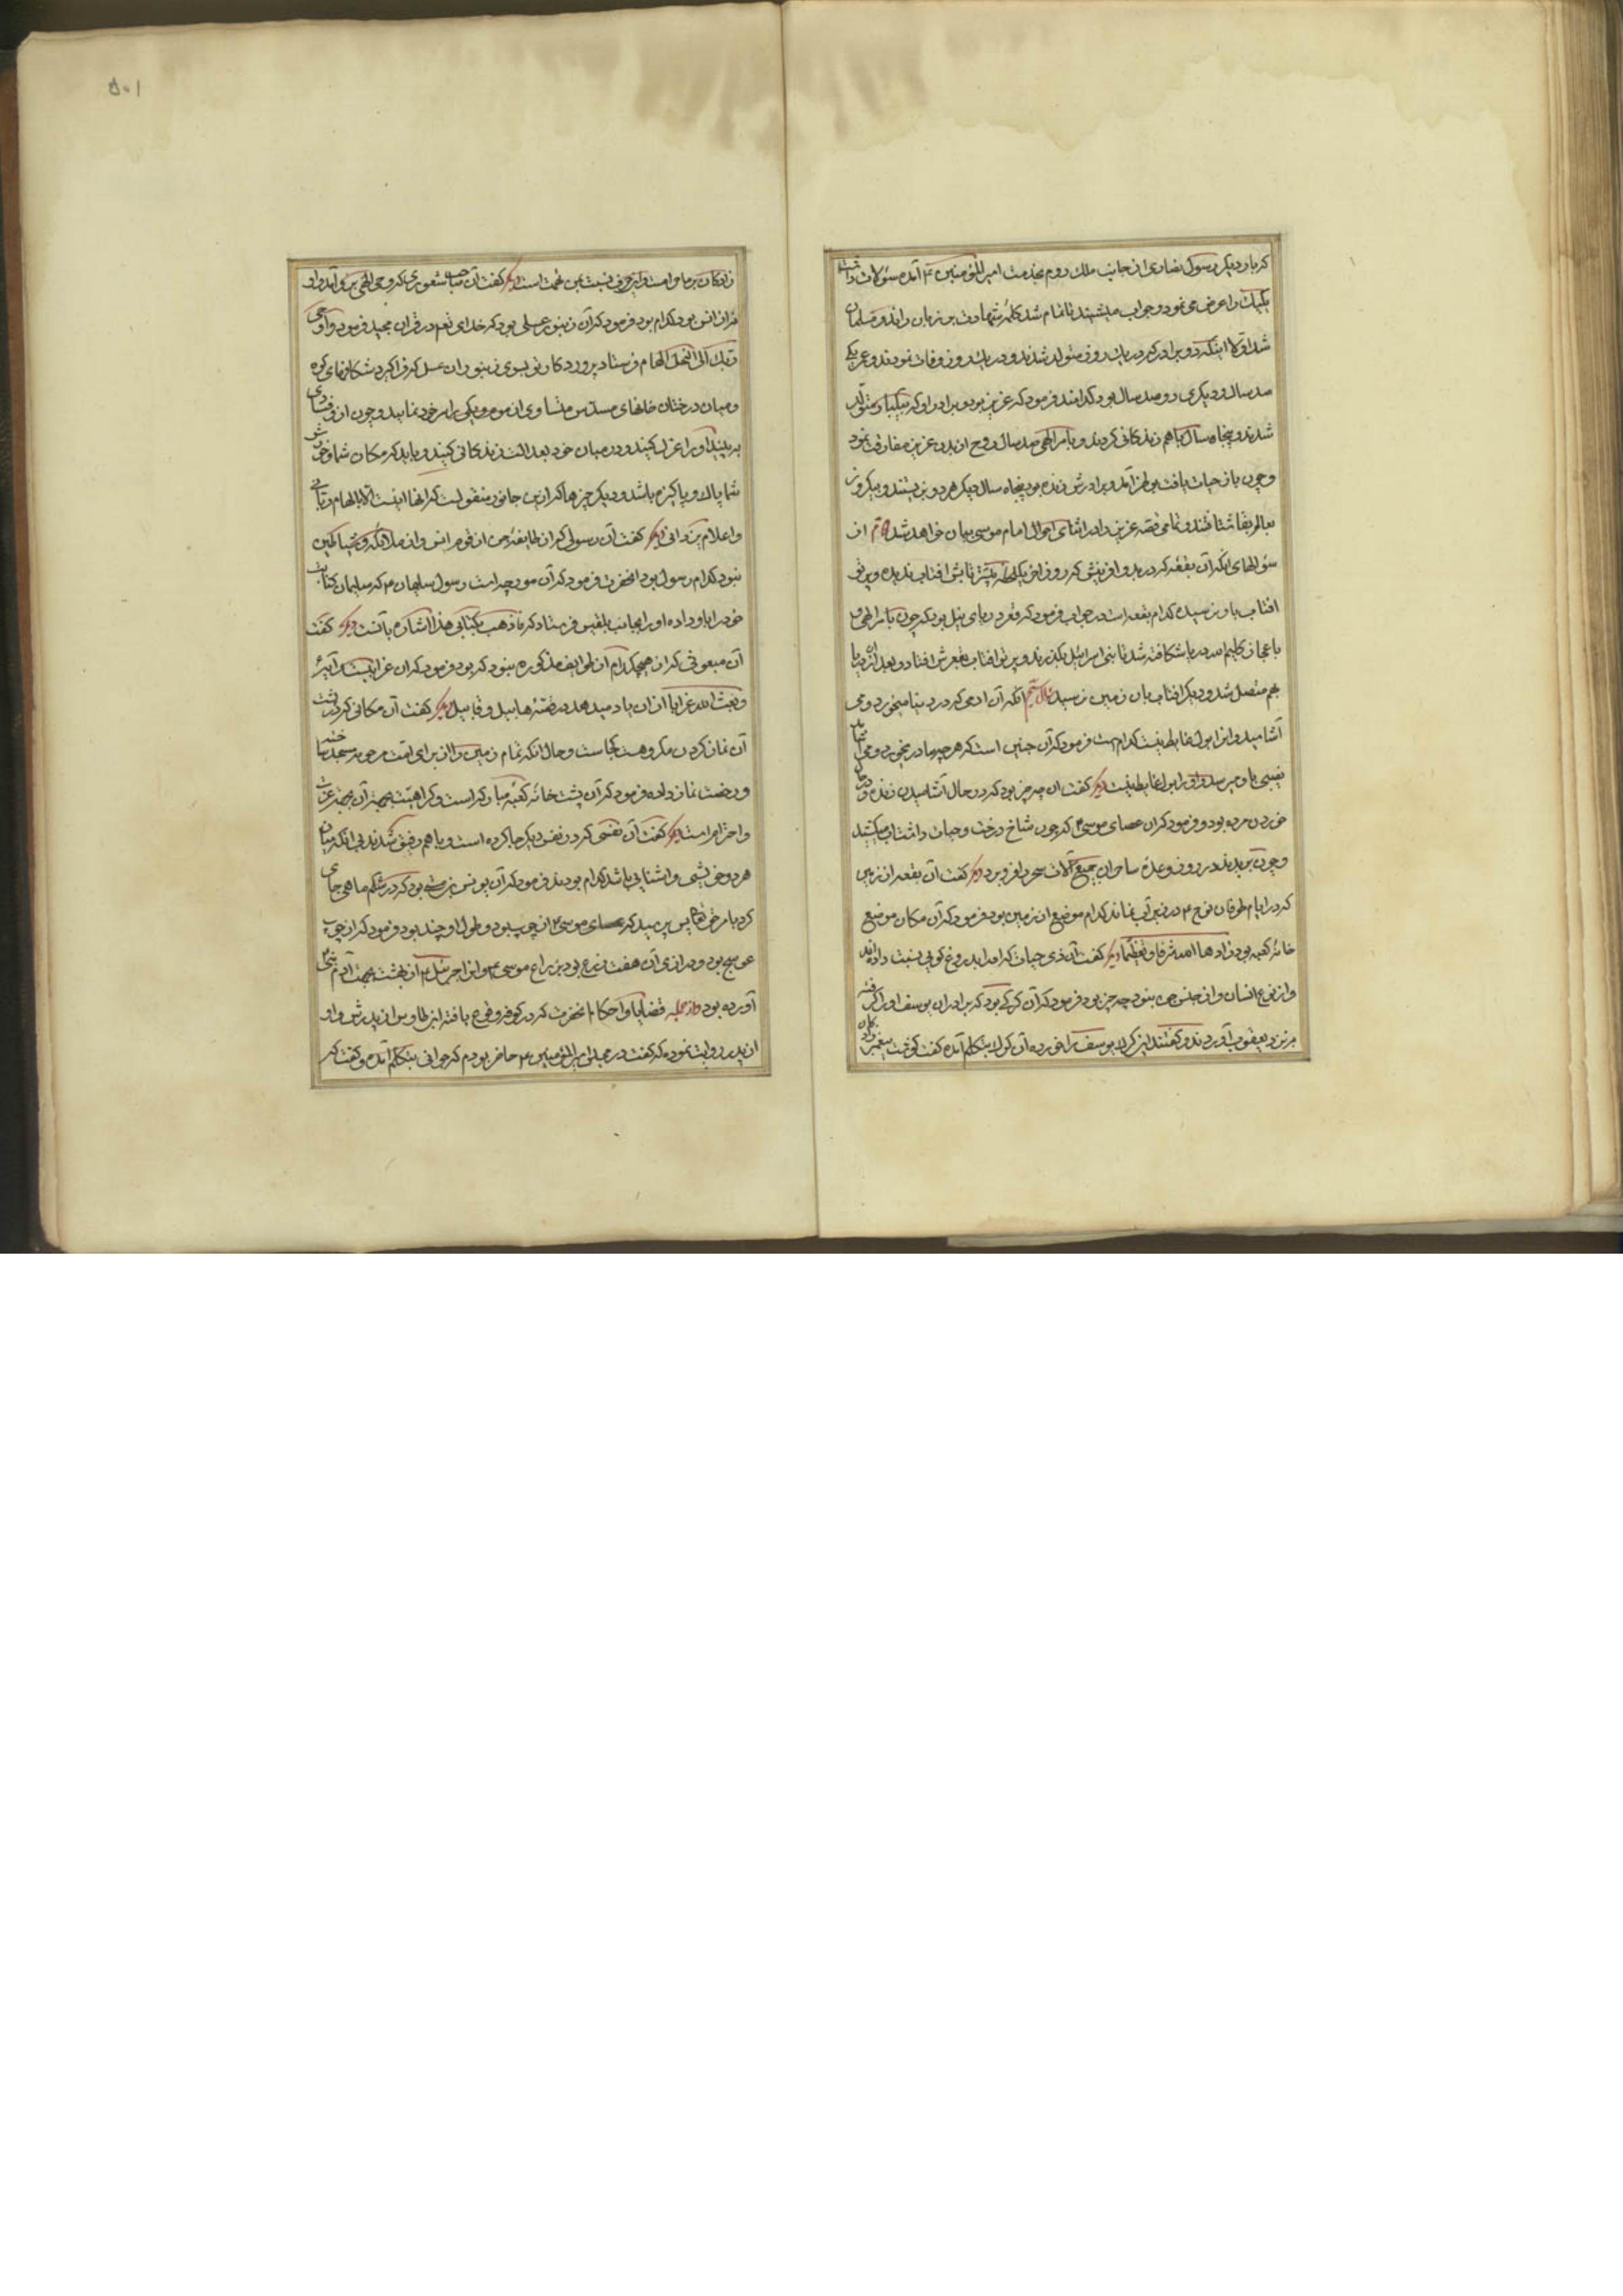 که بار دیگر رسول نصاری از جانب ملک روم بخدمت امیر المؤمنین ع آمده سؤالات داشت
یکیک را عرض می نمود و جواب میشنید تا تمام شد کلمه شهادت بر زبان راند و مسلمان
شد اولا اینکه دو برادر که در یک روز متولد شدند و در یک روز وفات نمودند و عمر یکی
صد سال و دیگری دو صد سال بود کدامند فرمود که عزیز بود و برادر او که بیکبار متولد
شدند و پنجاه سال با هم زندکانی کردند و بامر الهی صد سال روح از بدن عزیز مفارقت نمود
و چون باز حیات یافت بوطن آمد و برادرش زنده بود پنجاه سال دیکر هر دو بزیستند و بیکروز
بعالم بقا شتافتند و تمامی قصه عزیز در اثنای احوال امام موسی بیان خواهد شد دویم از
سؤالهای آنکه آن بقعه که در بدو آفرینش که روز آخر یک لحظه بیشتر تابش افتاب ندیده و پرتو
افتاب باو نرسیده کدام بقعه است در جواب فرمود که قعر دریای نیل بود که چون بامر الهی و
باعجاز کلیم الله دریا شکافته شد تا بنی اسرائیل بکذرند و پرتو افتاب بقعرش افتاد و بعد از آن دریا
بهم متصل شد و دیکر افتاب بان زمین نرسید سؤال سیم آنکه آن ادمی که در دنیا میخورد و می
آشامید و انرا بول و غایط نیست کدام است فرمود که آن جنین است که هر چه مادر میخورد و می آشامد
نصیبی باو میرسد و او را بول و غایط نیست دیکر کفت ان چه چیز بود که در حال آشامیدن زنده و در حال
خوردن مرده بود و فرمود که ان عصای موسی ع که چون شاخ درخت و حیات داشت اب میکشید
و چون بریدند در روز وعده ساحران جمیع آلات سحر را فرو برد دیکر کفت آن بقعه از زمین
که در ایام طوفان نوح ع در زیر آب نماند کدام موضع از زمین بود فرمود که آن مکان موضع
خانه کعبه بود زادها الله شرفا و تعظیما دیکر کفت آن ذی حیات که او را بدروغ کویی نسبت داده اند
و از نوع انسان و از جنس جن نبود چه چیز بود فرمود که آن کرکی بود که برادران یوسف او را کرفته
بر نزد یعقوب آوردند و کفتند این کرک یوسف را خورده آن کرک بتکلم آمده کفت کوشت پیغمبر زاد کان
زادکان بر ما حرام است و این حرف نسبت بمن تهمت است دیکر کفت آن صاحب شعوری که وحی الهی بر او آمد و او
نه از انس بود کدام بود فرمود که آن زنبور عسلی بود که خدای تعم در قران مجید فرمود و اوحی
ربک الی النحل الهام فرستاد پروردکار تو بسوی زنبوران عسل که فراکیرد شکافهای کوه
و میان درختان خانهای مسدس متساوی از موم و یکی را بر خود نمایید و چون ازو فسادی
ببینید او را عزل کنید و در میان خود بعدالت زندکانی کنید و باید که مکان شما و خورش
شما پاک و پاکیزه باشد و دیکر چیزها که ازین جانور منقولست که انها نیست الا بالهام ربانی
و اعلام یزدانی دیکر کفت آن رسولی که از طایفه جن از قوم انس و از ملائکه و شیاطین
نبود کدام رسول بود انحضرت فرمود که آن مور چه است رسول سلیمان ع که سلیمان کتاب
خود را باو داده او را بجانب بلقیس فرستاد که تا ذهب بکتابی هذا اشاره بآنست دیکر کفت
آن مبعوثی که از هیچکدام آن طوایف مذکوره نبود که بود فرمود که ان غرابیست آیه
و فبعث الله غرابا از ان یاد میدهد در قصه هابیل و قابیل دیکر کفت آن مکانی که بر پشت
آن نماز کردن مکروهست کجاست و حال انکه تمام زمین را از برای امت مرحومه مسجد ساخته
و رخصت نماز داده فرمود که آن پشت خانه کعبه مبارکه است و کراهیتش بجهت آن عزت
و احترام است دیکر کفت آن نفسی که در نفس دیکر جا کرده است و با هم رفیق شدند بی انکه میان
هر دو خویشی و اشنایی باشد کدام بودند فرمود که آن یونس بن متی بود که در شکم ماهی جای
کرد بامر حق تعالی پس پرسید که عصای موسی از چه چوب بود و طول او چند بود فرمود که از چوب
عوسج بود و درازی آن هفت ذرع بود بذراع موسی ع و انرا جبرئیل ع از بهشت بجهت آدم
آورده بود و از جمله قضایا و احکام انحضرت که در کوفه وقوع یافته ابن طاوس از پدرش و او
از پدر روایت نموده که کفت در مجلس امیر المؤمنین ع حاضر بودم که جوانی بتکلم آمده و کفت که
٥٠١